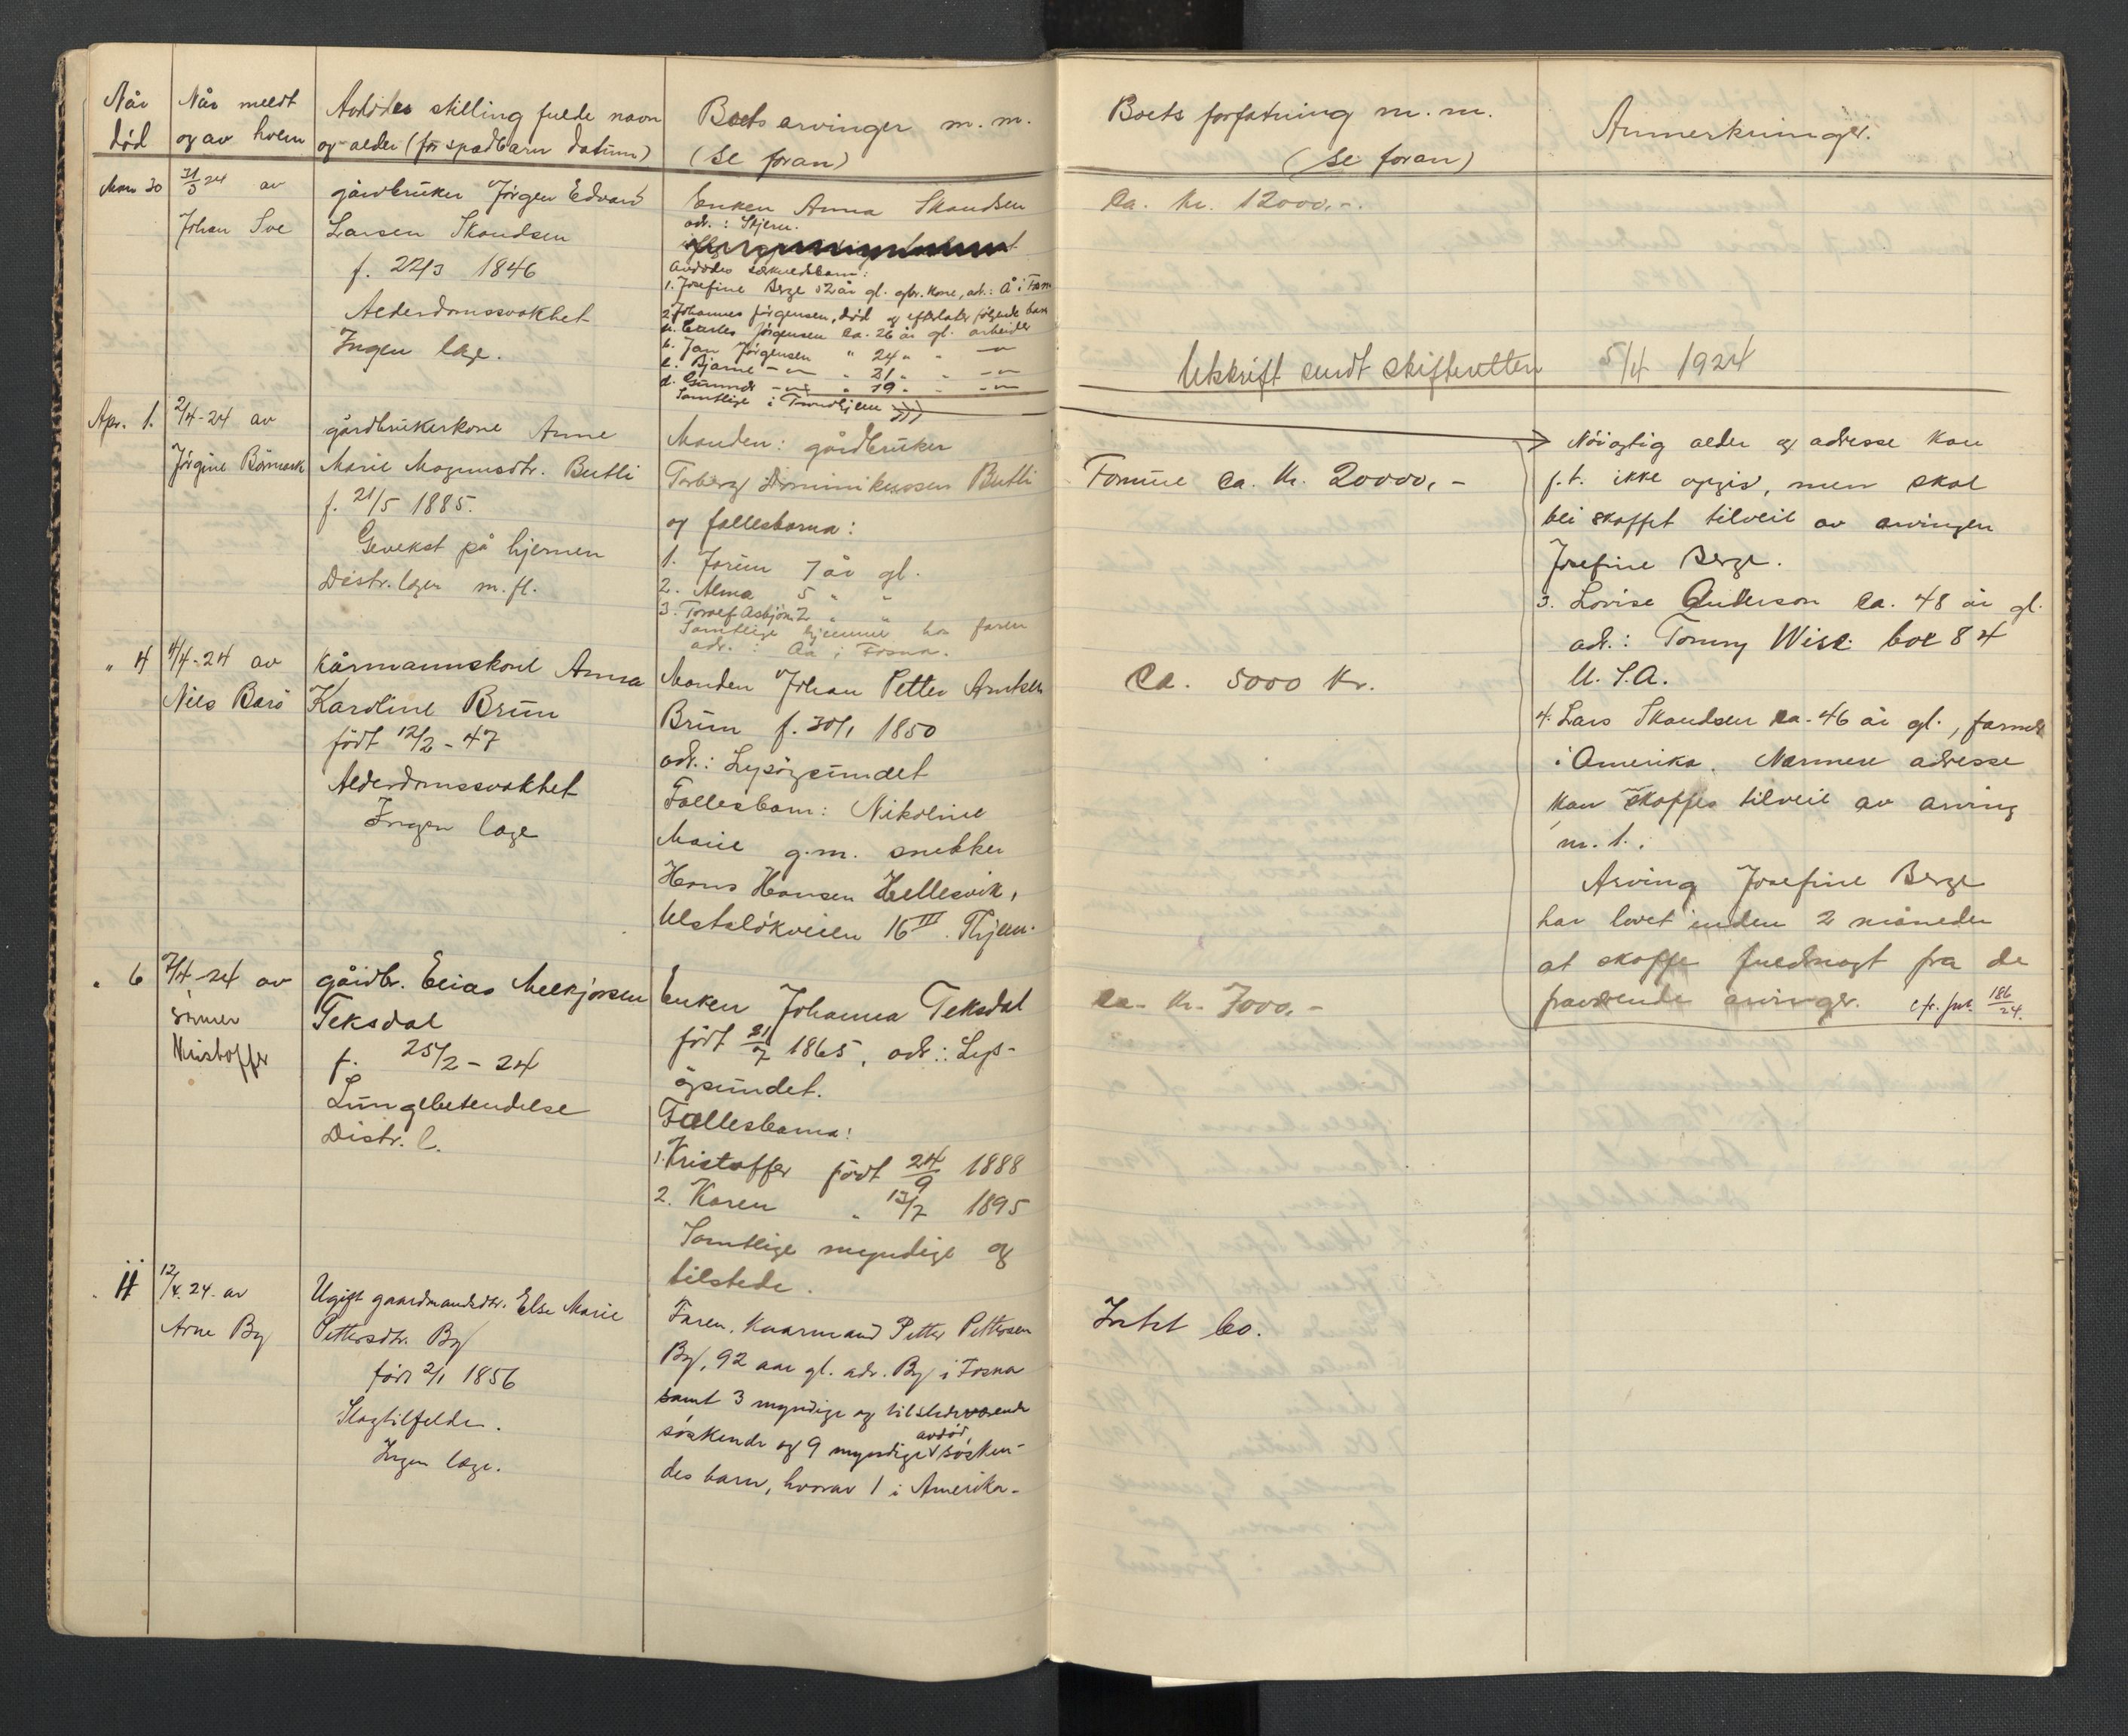 Når
død
Når meldt
og av hvem
Avdødes stilling fulde navn
og alder (for spædbarn datum)
Boets arvinger m. m.
(Se foran)
Boets forfatning m. m.
(Se foran)
Anmerkninger.
Mars 30
31/3 24 av
Johan Soe
gårdbruker Jörgen Edvard
Larsen Skandsen
f. 22/3 1846
Alderdomssvakhet
Ingen læge.
Enken Anna Skandsen
adr.: Stjern.
Avdödes særkuldsbarn:
1. Josefine Berge 52 år gl. gbr. kone, adr.: Å i Fosna
2. Johannes Jörgensen, död og efterlater følgende barn
a. Charles Jörgensen ca. 26 år gl. arbeider
b. Jan Jörgensen " 24 " " —"—
c. Bjarne —"— " 21 " " —"—
d. Gunnar —"— " 19 " " —"—
Samtlige i Trondhjem
Ca. Kr. 12000.-.
Utskrift sendt skifteretten 5/4 1924
Apr. 1.
2/4-24 av
Jörgine Börmark
gårdbrukerkone Anne
Marie Magnusdtr. Butli
f. 21/5 1885.
Gevekst på hjernen
Distr.lægen m. fl.
Manden: gårdbruker
Torberg Dominikussen Butli
og fællesbarna:
1. Jorun 7 år gl.
2. Alma 5 " "
3. Torolf Asbjörn 2 " "
Samtlige hjemme hos faren
adr.: Aa i Fosna.
Formue ca. Kr. 20000,-
Nöiagtig alder og adresse kan
f.t. ikke opgis, men skal
bli skaffet tilveie av arvingen
Josefine Berge.
3. Lovise Anderson ca. 48 år gl.
adr.: Tomry Wisc. box 84
U. S. A.
4. Lars Skandsen ca. 46 år gl., farmer
i Amerika. Nærmere adresse
kan skaffes tilveie av arving
nr. 1.
Arving Josefine Berge
har lovet inden 2 måneder
at skaffe fuldmagt fra de
fraværende arvinger. cfr. jnr. 186/24.
" 4
4/4-24 av
Nils Barö
Kårmannskone Anna
Karoline Brun
födt 12/2-47
Alderdomssvakhet
Ingen læge
Manden Johan Petter Arntsen
Brun f. 30/1 1850
adr.: Lysöysundet
Fællesbarn: Nikoline
Marie g.m. snekker
Hans Hansen Hellesvik,
Ulstadlökveien 16 III. Thjem.
Ca. 5000 Kr.
" 6
7/4-24 av
sönnen
Kristoffer
gårdbr. Elias Melkjorsen
Teksdal
f. 25/2-24
Lungebetendelse
Distr. l.
Enken Johanna Teksdal
födt 21/7 1865, adr.: Lys-
öysundet.
Fællesbarna:
1. Kristoffer födt 24/9 1888
2. Karen " 13/7 1895
Samtlige myndige og
tilstede.
Ca. Kr. 7000.-
" 11
12/4. 24. av
Arne By
Ugift gaardmandsdtr. Else Marie
Pettersdtr. By
född 2/1 1856
Slagtilfelde.
Ingen læge.
Faren, Kaarmand Petter Pettersen
By, 92 aar gl. adr. By i Fosna
samt 3 myndige og tilstedeværende
söskende og 9 myndige avdöd. sösken-
des barn, hvorav 1 i Amerika.
Intet bo.